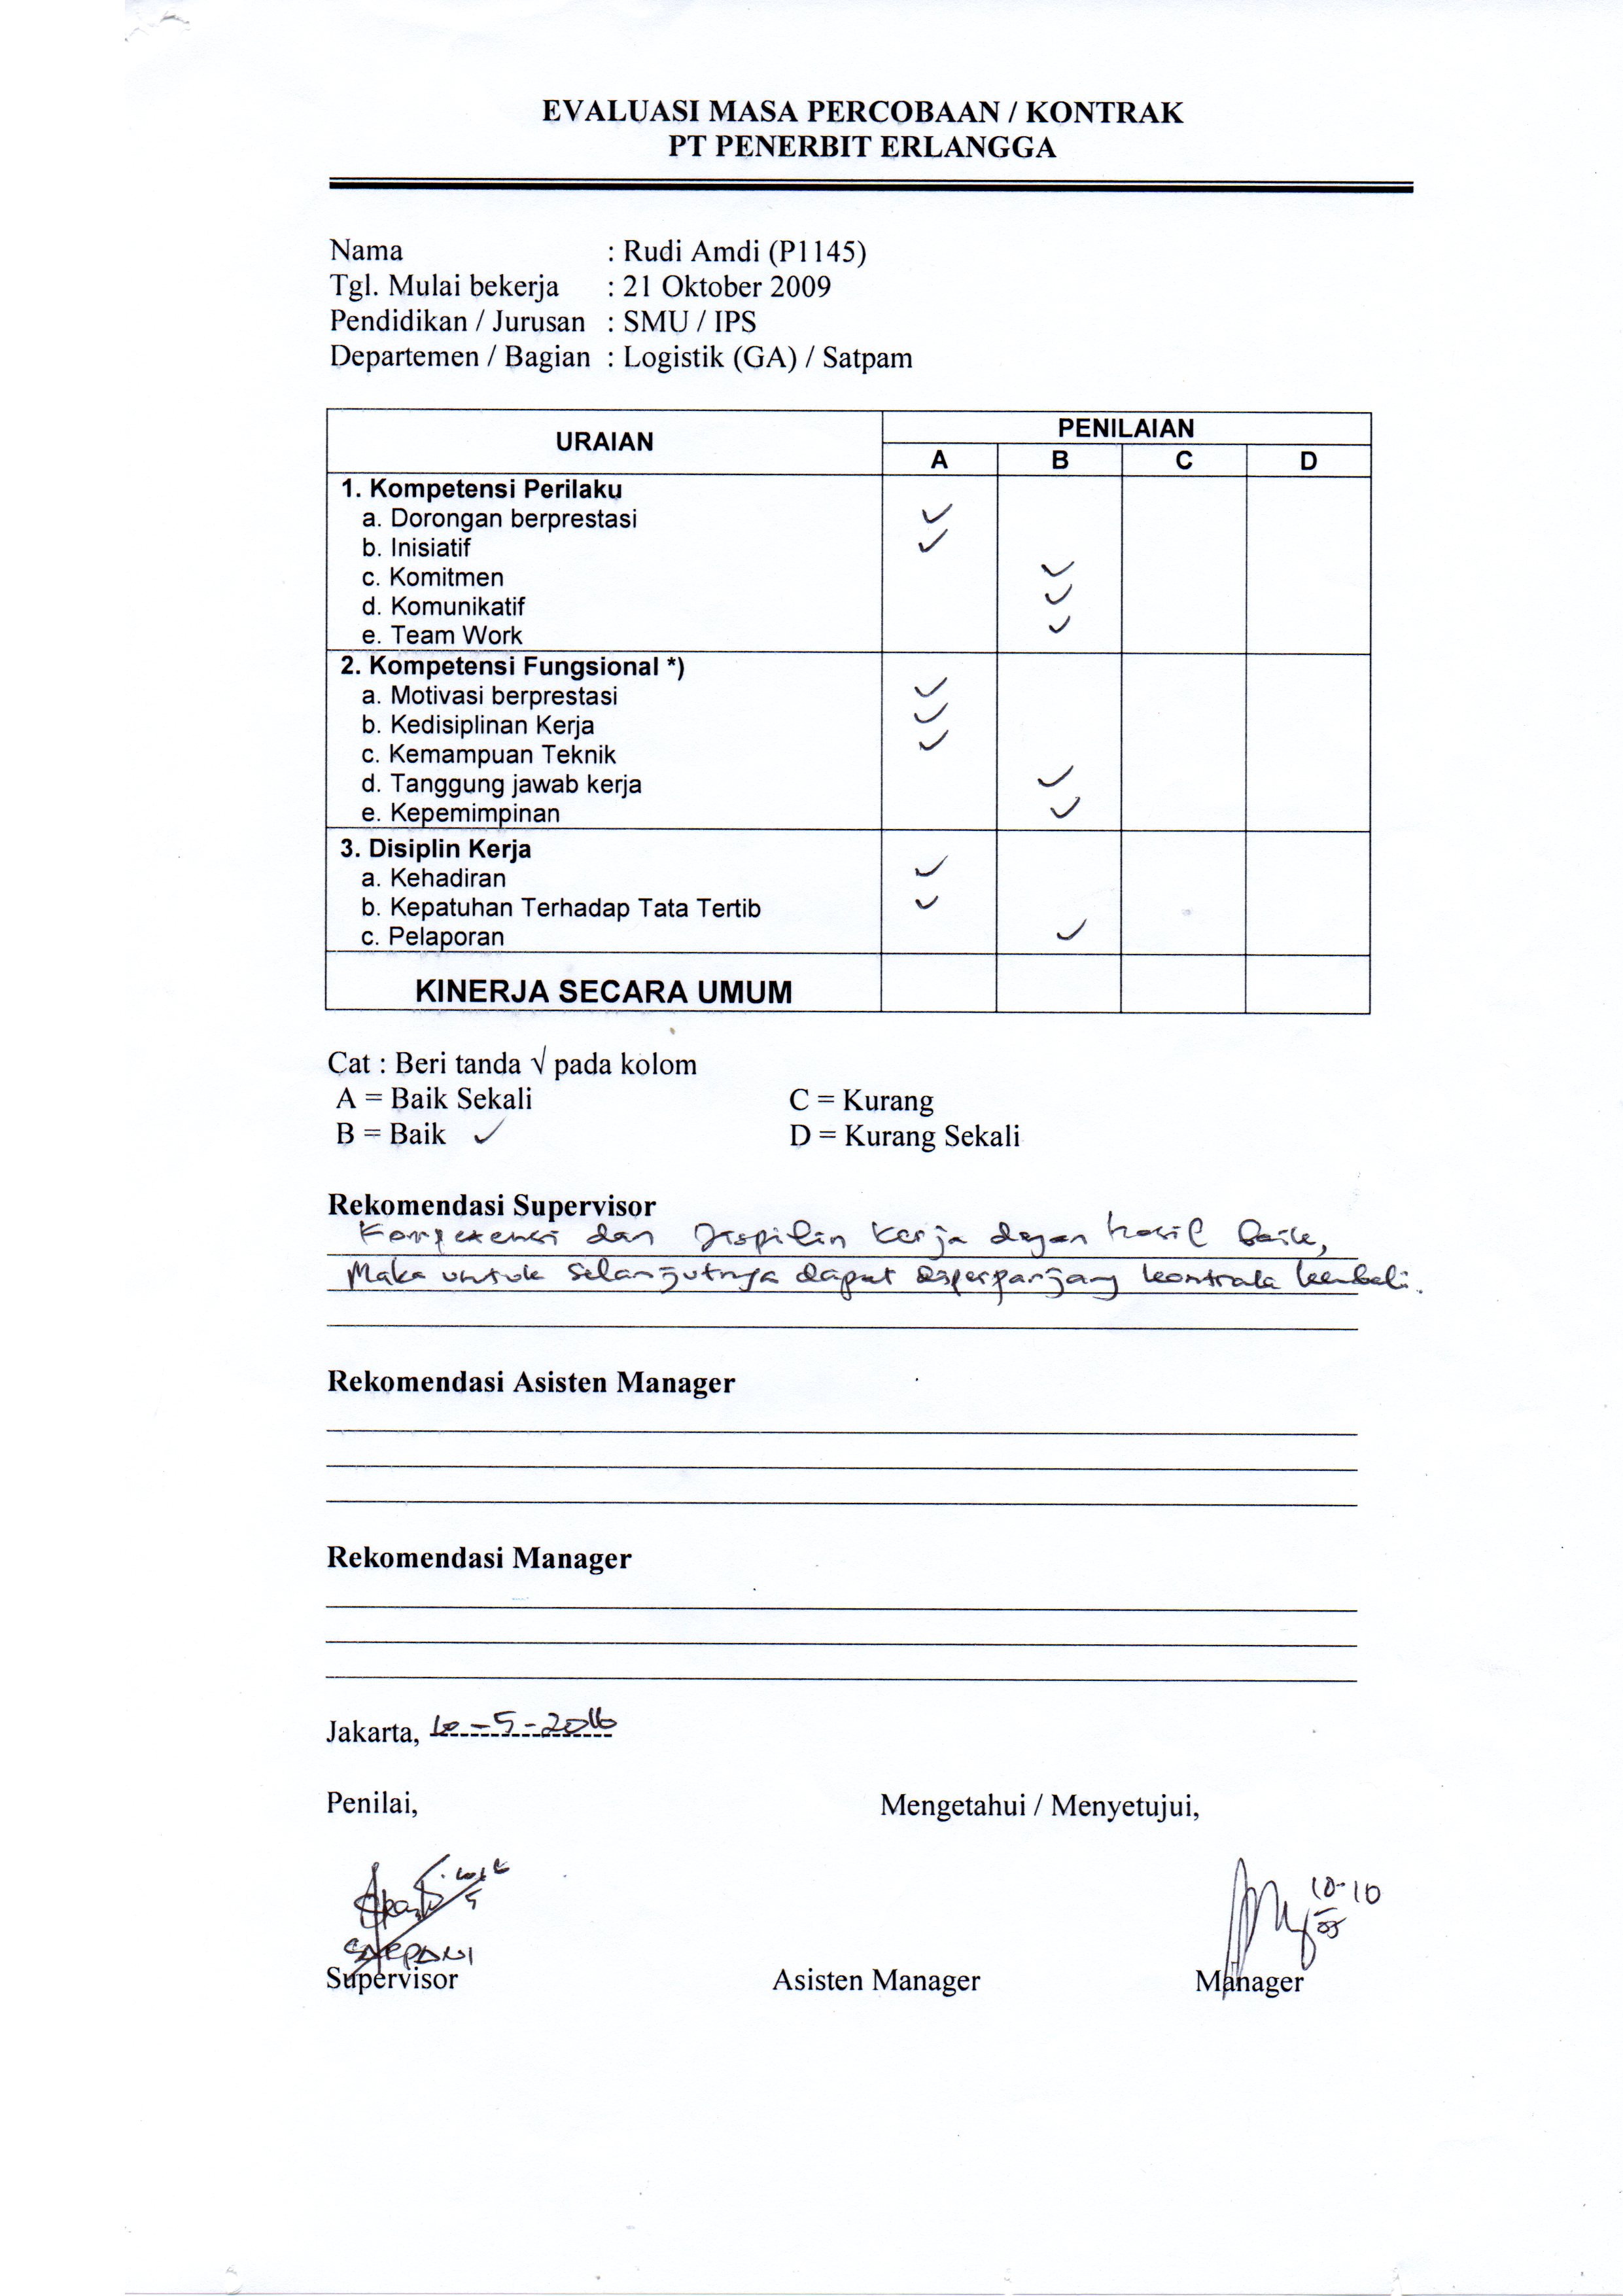 EVALUASI MASA PERCOBAAN / KONTRAK
PT PENERBIT ERLANGGA
Nama : Rudi Amdi (P1145)
Tgl. Mulai bekerja : 21 Oktober 2009
Pendidikan / Jurusan : SMU / IPS
Departemen / Bagian : Logistik (GA) / Satpam
URAIAN PENILAIAN
A B C D
1. Kompetensi Perilaku
a. Dorongan berprestasi ✓
b. Inisiatif ✓
c. Komitmen ✓
d. Komunikatif ✓
e. Team Work ✓
2. Kompetensi Fungsional *)
a. Motivasi berprestasi ✓
b. Kedisiplinan Kerja ✓
c. Kemampuan Teknik ✓
d. Tanggung jawab kerja ✓
e. Kepemimpinan ✓
3. Disiplin Kerja
a. Kehadiran ✓
b. Kepatuhan Terhadap Tata Tertib ✓
c. Pelaporan ✓
KINERJA SECARA UMUM
Cat : Beri tanda √ pada kolom
A = Baik Sekali C = Kurang
B = Baik ✓ D = Kurang Sekali
Rekomendasi Supervisor
Kompetensi dan Disiplin Kerja dengan hasil baik,
Maka untuk selanjutnya dapat diperpanjang kontrak kembali.
Rekomendasi Asisten Manager
Rekomendasi Manager
Jakarta, 10-5-2010
Penilai, Mengetahui / Menyetujui,
10-10
05
Supervisor Asisten Manager Manager